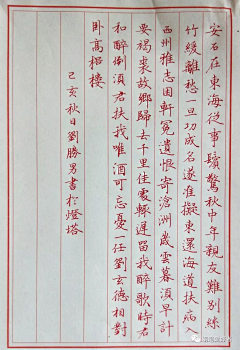 安石在東海從事鬢驚秋中年親友難別絲
竹緩離愁一旦功成名遂准擬東還海道扶病入
西州雅志困軒冕遺恨寄滄洲歲雲暮須早計
要褐裘故鄉歸去千里佳處輒遲留我醉歌時君
和醉倒須君扶我唯酒可忘憂一任劉玄德相對
卧高樓
己亥秋日劉勝男書於燈塔